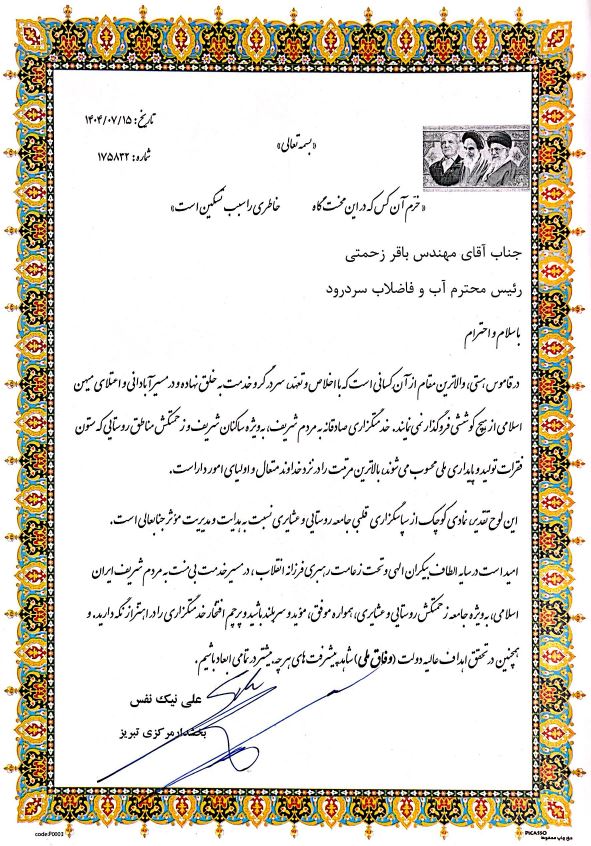 تاریخ: ۱۴۰۴/۰۷/۱۵
شماره: ۱۷۵۸۳۲
«بسمه تعالی»
«خرّم آن کس که در این محنت گاه خاطری را سبب تسکین است»
جناب آقای مهندس باقر زحمتی
رئیس محترم آب و فاضلاب سردرود
با سلام و احترام
در قاموس هستی، والاترین مقام از آن کسانی است که با اخلاص و تعهد، سر در گرو خدمت به خلق نهاده و در مسیر آبادانی و اعتلای میهن
اسلامی از هیچ کوششی فروگذار نمی نمایند. خدمتگزاری صادقانه به مردم شریف، به ویژه ساکنان شریف و زحمتکش مناطق روستایی که ستون
فقرات تولید و پایداری ملی محسوب می شوند، بالاترین مرتبت را در نزد خداوند متعال و اولیای امور داراست.
این لوح تقدیر، نمادی کوچک از سپاسگزاری قلبی جامعه روستایی و عشایری نسبت به هدایت و مدیریت مؤثر جنابعالی است.
امید است در سایه الطاف بیکران الهی و تحت زعامت رهبری فرزانه انقلاب، در مسیر خدمت بی منت به مردم شریف ایران
اسلامی، به ویژه جامعه زحمتکش روستایی و عشایری، همواره موفق، مؤید و سربلند باشید و پرچم افتخار خدمتگزاری را در اهتزاز نگه دارید. و
همچنین در تحقق اهداف عالیه دولت (وفاق ملی) شاهد پیشرفت های هر چه بیشتر در تمامی ابعاد باشیم.
علی نیک نفس
بخشدار مرکزی تبریز
code:P0003
PICASSO
حق چاپ محفوظ